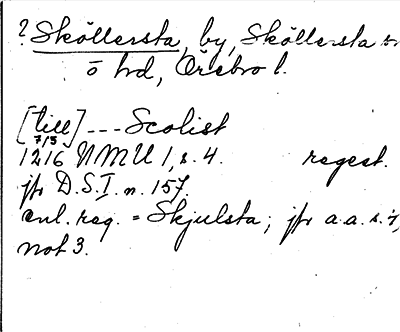 ? Sköllersta, by, Sköllersta sn
ö hd, Örebro l.
[till] --- Scolist
7/3
1216 NMU 1, s. 4. regest.
jfr D.S.I. n. 157.
enl. reg. = Skjulsta; jfr a.a. s.
not 3.